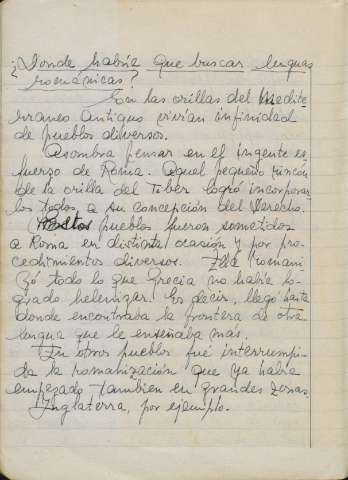 ¿Donde habría que buscar lenguas
románicas?
Con las orillas del Medite
rraneo Antiguo vivían infinidad
de pueblos diversos.
Asombra pensar en el ingente es
fuerzo de Roma. Aquel pequeño rincón
de la orilla del Tiber logró incorporar
los todos a su concepción del Derecho.
Estos pueblos fueron sometidos
a Roma en distinta ocasión y por pro
cedimientos diversos. Ella romani
zó todo lo que Grecia no había lo
grado helenizar. Es decir, llegó hasta
donde encontraba la frontera de otra
lengua que le enseñaba más.
En otros pueblos fué interrumpi
da la romanización que ya había
empezado tambien en grandes zonas
Inglaterra, por ejemplo.